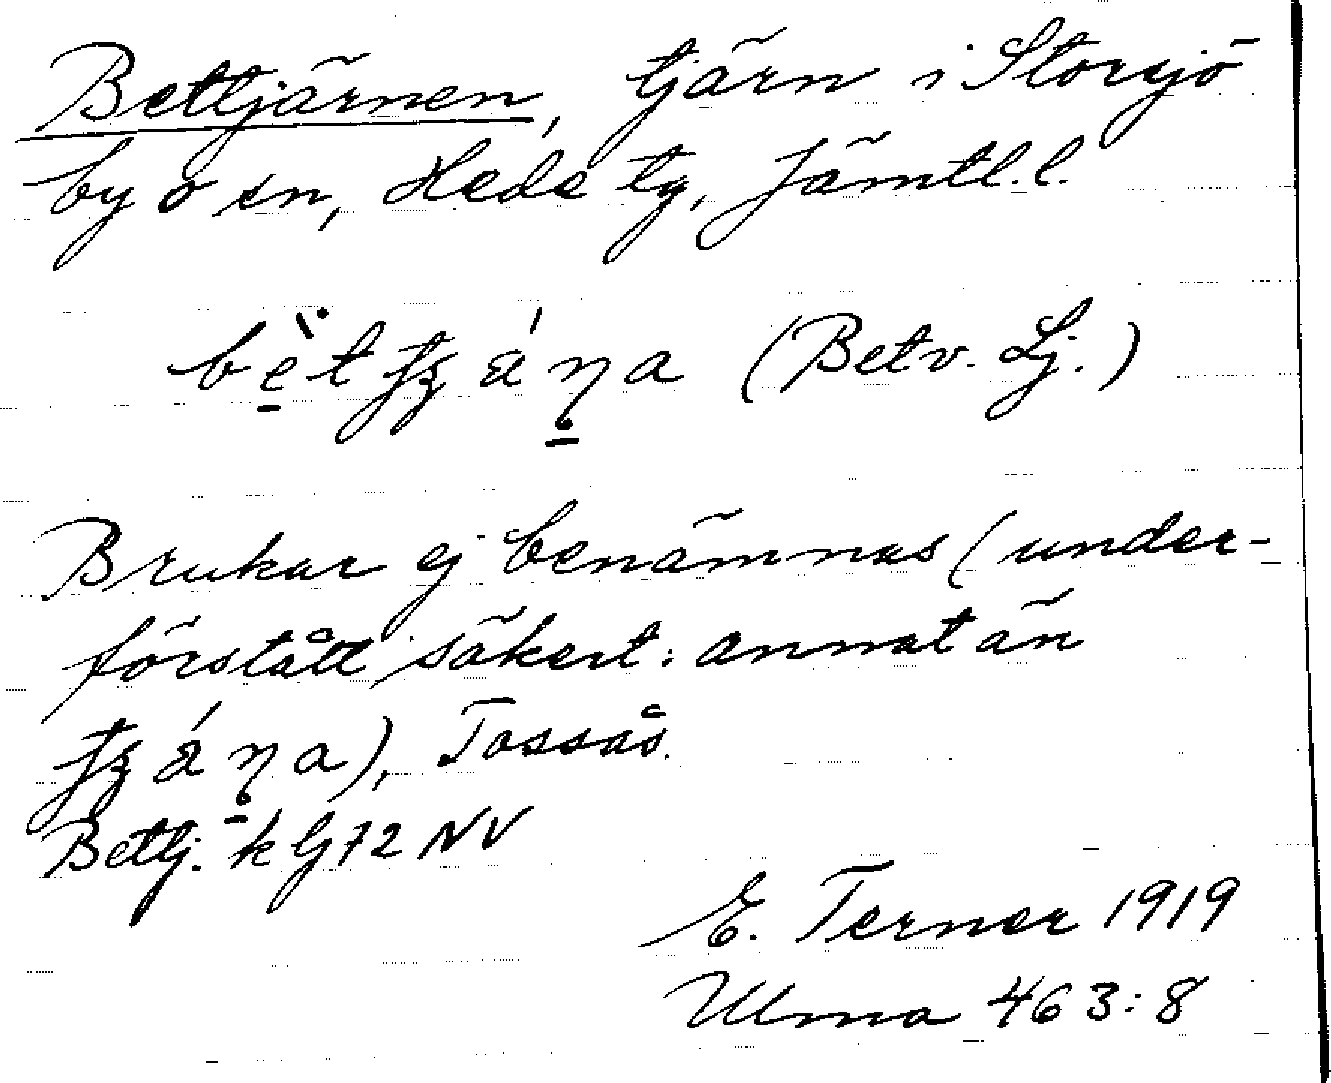 Bettjärnen, tjärn i Storsjö
by o sn, Hede tg, Jämtl.l.
(Betv. Lj.)
Brukar ej benämnas (under-
förstått säkert: annat än
), Tossås.
Bettj. k lj 72 NV
E. Terner 1919
Ulma 463:8